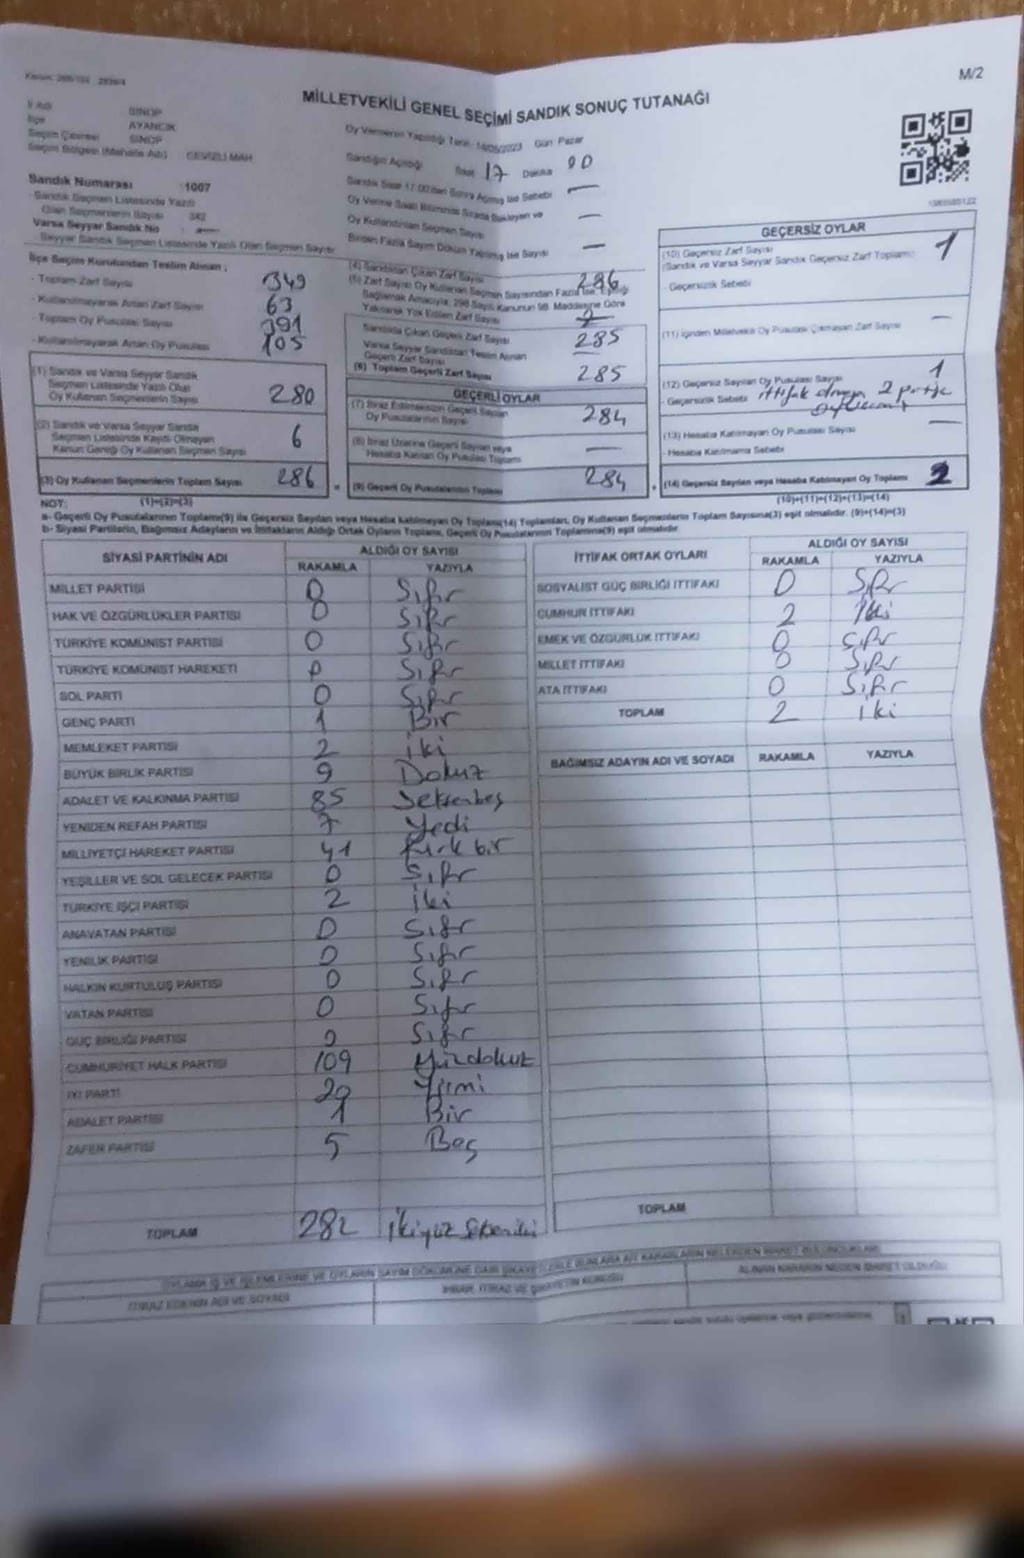 M/2
MİLLETVEKİLİ GENEL SEÇİMİ SANDIK SONUÇ TUTANAĞI
İl Adı SİNOP
İlçe AYANCIK
Seçim Çevresi SİNOP
Seçim Bölgesi (Mahalle Adı) CEVİZLİ MAH
Sandık Numarası 1007
Sandık Seçmen Listesinde Yazılı
Olan Seçmenlerin Sayısı 342
Varsa Seyyar Sandık No
Seyyar Sandık Seçmen Listesinde Yazılı Olan Seçmen Sayısı
Oy Vermenin Yapıldığı Tarih: 14/05/2023 Gün: Pazar
Sandığın Açıldığı Saat 17 Dakika 00
Sandık Saat 17:00'dan Sonra Açılmış İse Sebebi —
Oy Verme Saati Bitiminde Sırada Bekleyen ve
Oy Kullandırılan Seçmen Sayısı —
Birden Fazla Sayım Döküm Yapılmış İse Sayısı —
İlçe Seçim Kurulundan Teslim Alınan :
- Toplam Zarf Sayısı 349
- Kullanılmayarak Artan Zarf Sayısı 63
- Toplam Oy Pusulası Sayısı 391
- Kullanılmayarak Artan Oy Pusulası 105
(1) Sandık ve Varsa Seyyar Sandık
Seçmen Listesinde Yazılı Olup
Oy Kullanan Seçmenlerin Sayısı 280
(2) Sandık ve Varsa Seyyar Sandık
Seçmen Listesinde Kayıtlı Olmayan
Kanun Gereği Oy Kullanan Seçmen Sayısı 6
(3) Oy Kullanan Seçmenlerin Toplam Sayısı 286
(1)+(2)=(3)
(4) Sandıktan Çıkan Zarf Sayısı 286
(5) Zarf Sayısı Oy Kullanan Seçmen Sayısından Fazla İse, Eşitliği
Sağlamak Amacıyla; 298 Sayılı Kanunun 98. Maddesine Göre
Yakılarak Yok Edilen Zarf Sayısı
Sandıkta Çıkan Geçerli Zarf Sayısı 285
Varsa Seyyar Sandıktan Teslim Alınan
Geçerli Zarf Sayısı —
(6) Toplam Geçerli Zarf Sayısı 285
GEÇERLİ OYLAR
(7) İtiraz Edilmeksizin Geçerli Sayılan
Oy Pusulalarının Sayısı 284
(8) İtiraz Üzerine Geçerli Sayılan veya
Hesaba Katılan Oy Pusulası Toplamı —
(9) Geçerli Oy Pusulalarının Toplamı 284
GEÇERSİZ OYLAR
(10) Geçersiz Zarf Sayısı 1
(Sandık ve Varsa Seyyar Sandık Geçersiz Zarf Toplamı)
- Geçersizlik Sebebi
(11) İçinden Milletvekili Oy Pusulası Çıkmayan Zarf Sayısı —
(12) Geçersiz Sayılan Oy Pusulası Sayısı 1
- Geçersizlik Sebebi ittifak olmayan 2 partiye
(13) Hesaba Katılmayan Oy Pusulası Sayısı —
- Hesaba Katılmama Sebebi
(14) Geçersiz Sayılan veya Hesaba Katılmayan Oy Toplamı 2
(10)+(11)+(12)+(13)=(14)
NOT:
a- Geçerli Oy Pusulalarının Toplamı(9) ile Geçersiz Sayılan veya Hesaba Katılmayan Oy Toplamı(14) Toplamları, Oy Kullanan Seçmenlerin Toplam Sayısına(3) eşit olmalıdır. (9)+(14)=(3)
b- Siyasi Partilerin, Bağımsız Adayların ve İttifakların Aldığı Ortak Oyların Toplamı, Geçerli Oy Pusulalarının Toplamına(9) eşit olmalıdır.
SİYASİ PARTİNİN ADI ALDIĞI OY SAYISI
RAKAMLA YAZIYLA
MİLLET PARTİSİ 0 Sıfır
HAK VE ÖZGÜRLÜKLER PARTİSİ 0 Sıfır
TÜRKİYE KOMÜNİST PARTİSİ 0 Sıfır
TÜRKİYE KOMÜNİST HAREKETİ 0 Sıfır
SOL PARTİ 0 Sıfır
GENÇ PARTİ 1 Bir
MEMLEKET PARTİSİ 2 iki
BÜYÜK BİRLİK PARTİSİ 9 Dokuz
ADALET VE KALKINMA PARTİSİ 85 Seksenbeş
YENİDEN REFAH PARTİSİ 7 Yedi
MİLLİYETÇİ HAREKET PARTİSİ 41 Kırk bir
YEŞİLLER VE SOL GELECEK PARTİSİ 0 Sıfır
TÜRKİYE İŞÇİ PARTİSİ 2 iki
ANAVATAN PARTİSİ 0 Sıfır
YENİLİK PARTİSİ 0 Sıfır
HALKIN KURTULUŞ PARTİSİ 0 Sıfır
VATAN PARTİSİ 0 Sıfır
GÜÇ BİRLİĞİ PARTİSİ 0 Sıfır
CUMHURİYET HALK PARTİSİ 109 Yüzdokuz
İYİ PARTİ 20 Yirmi
ADALET PARTİSİ 1 Bir
ZAFER PARTİSİ 5 Beş
TOPLAM 282 İkiyüz Seksen iki
İTTİFAK ORTAK OYLARI ALDIĞI OY SAYISI
RAKAMLA YAZIYLA
SOSYALİST GÜÇ BİRLİĞİ İTTİFAKI 0 Sıfır
CUMHUR İTTİFAKI 2 İki
EMEK VE ÖZGÜRLÜK İTTİFAKI 0 Sıfır
MİLLET İTTİFAKI 0 Sıfır
ATA İTTİFAKI 0 Sıfır
TOPLAM 2 iki
BAĞIMSIZ ADAYIN ADI VE SOYADI RAKAMLA YAZIYLA
TOPLAM
OYLAMA İŞ VE İŞLEMLERİNE VE OYLARIN SAYIM DÖKÜMÜNE DAİR ŞİKAYETLERLE BUNLARA AİT KARARLARIN NELERDEN İBARET BULUNDUKLARI
İTİRAZ EDENİN ADI VE SOYADI
İHBAR, İTİRAZ VE ŞİKAYETİN KONUSU
ALINAN KARARIN NEDEN İBARET OLDUĞU